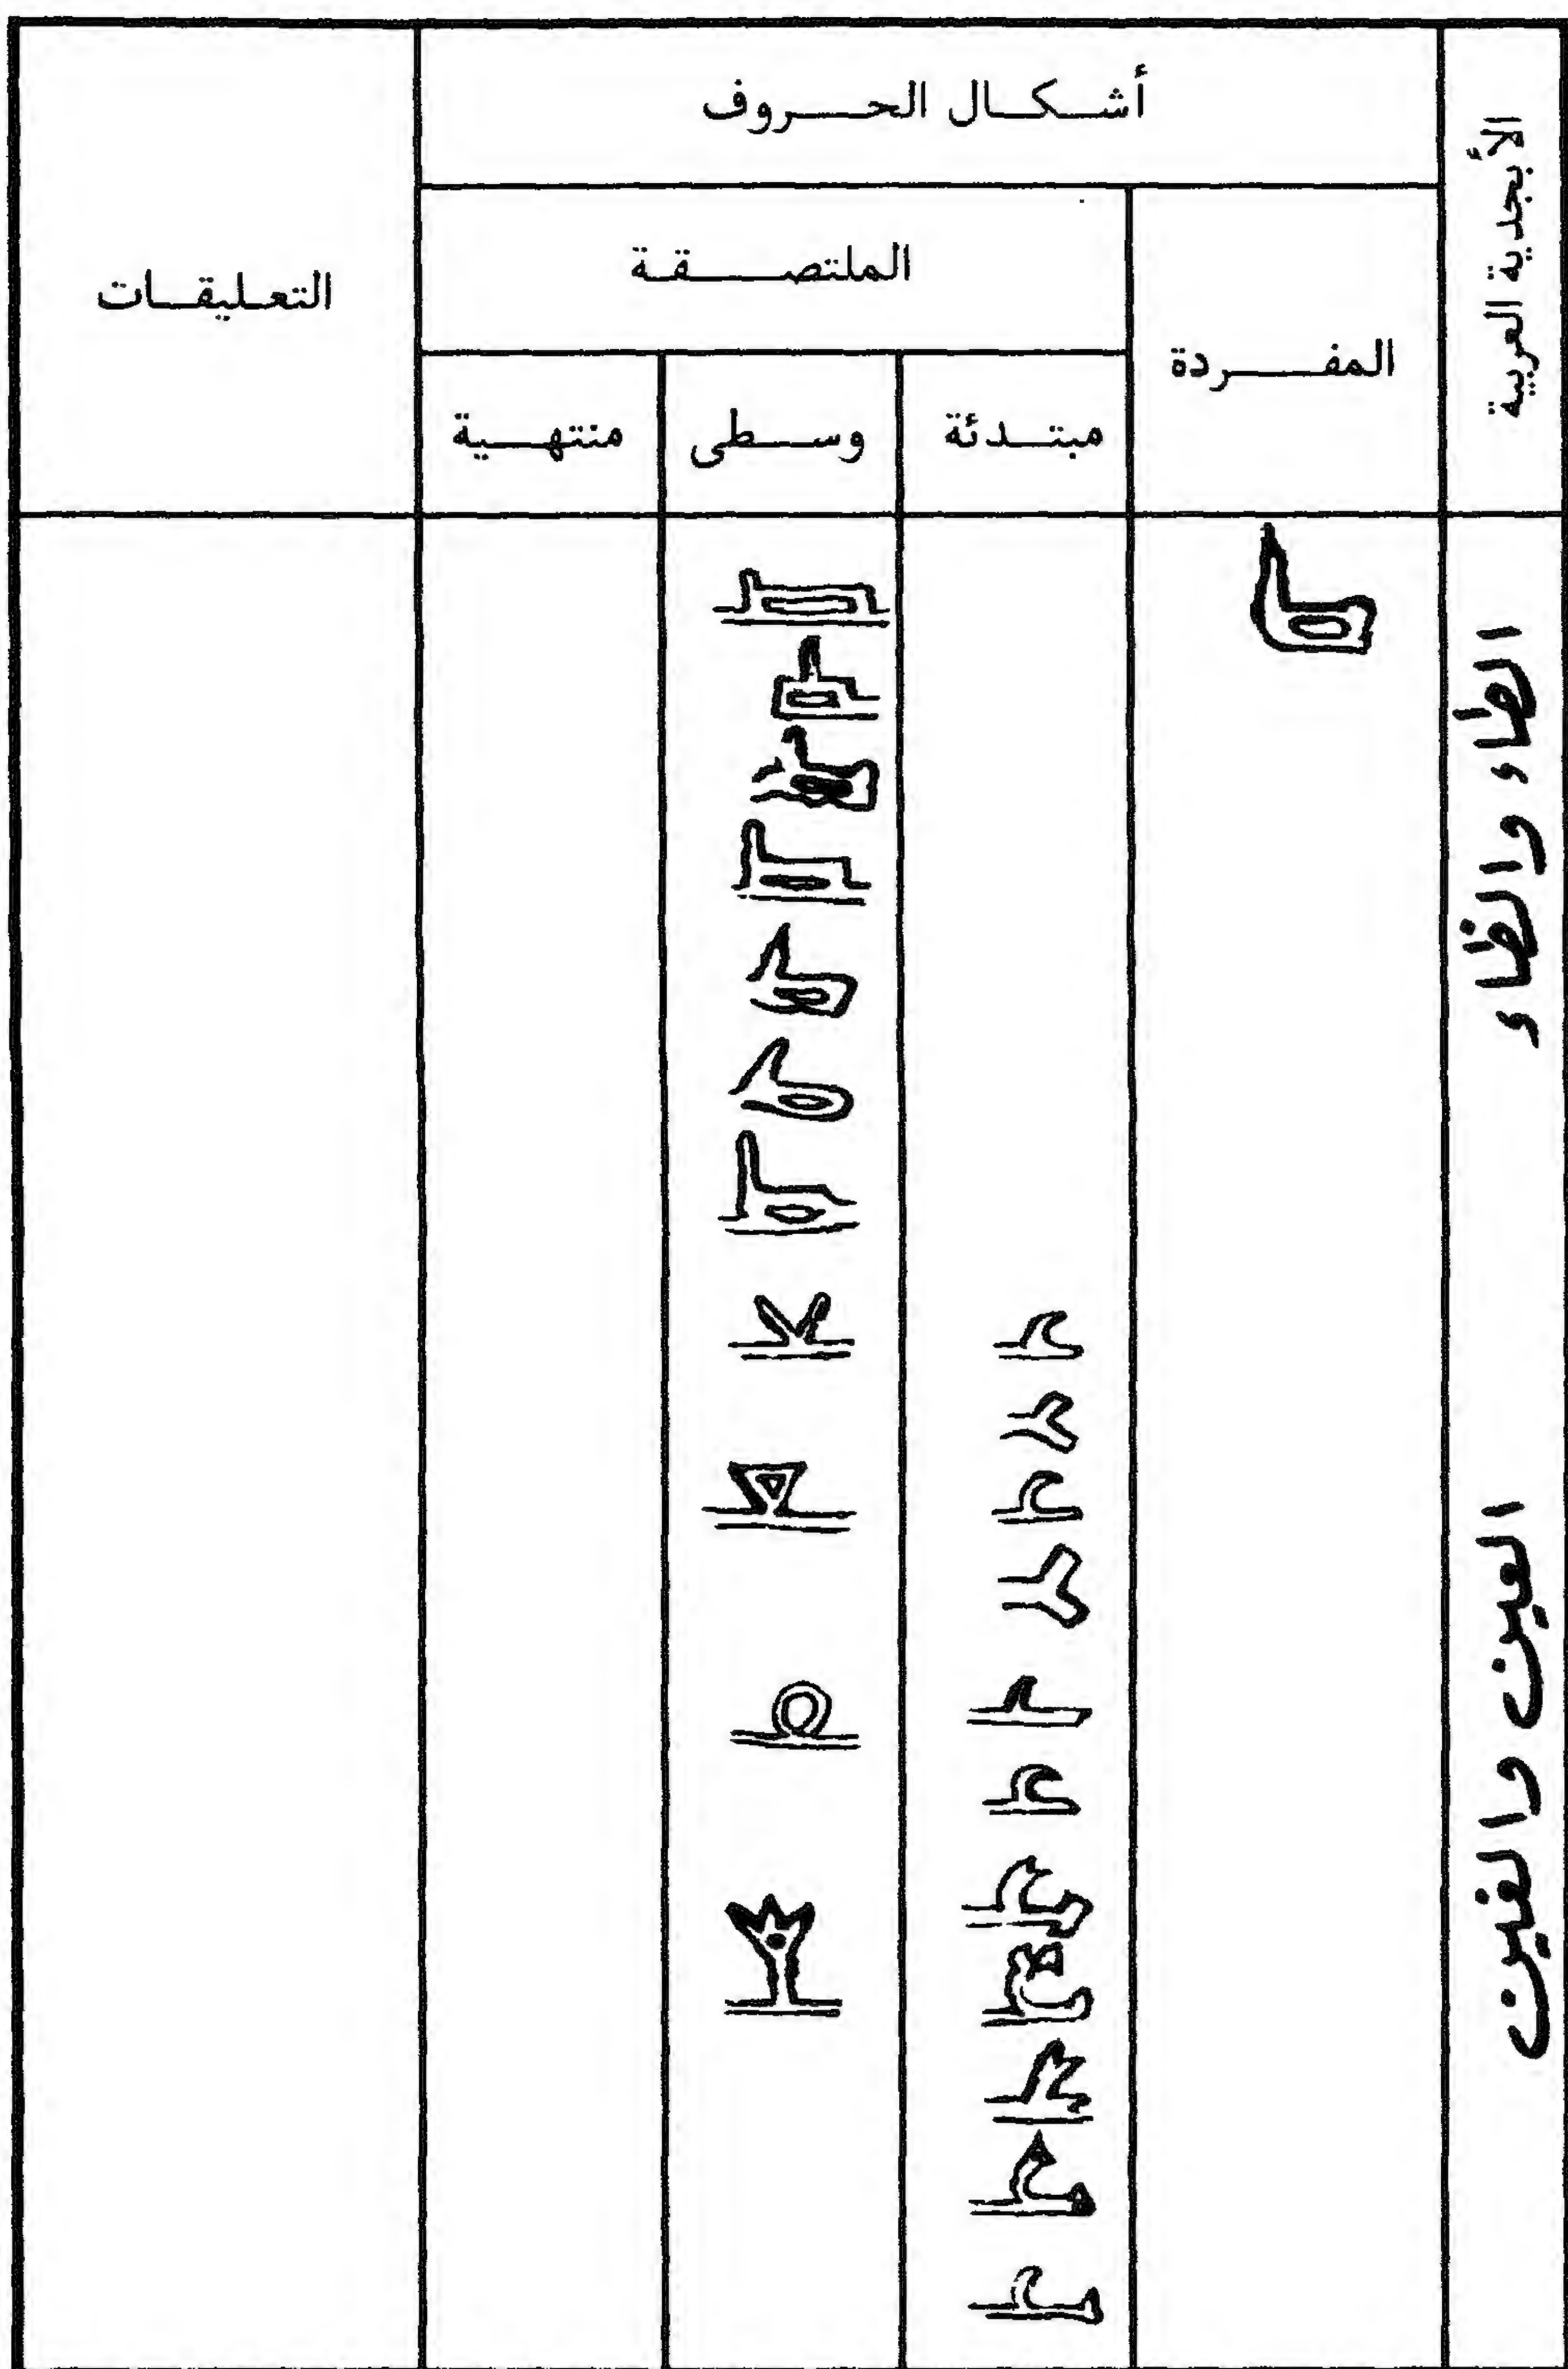 الأبجدية العربية
أشكال الحروف
التعليقات
المفردة
الملتصقة
مبتدئة
وسطى
منتهية
الطاء والظاء
العين والغين